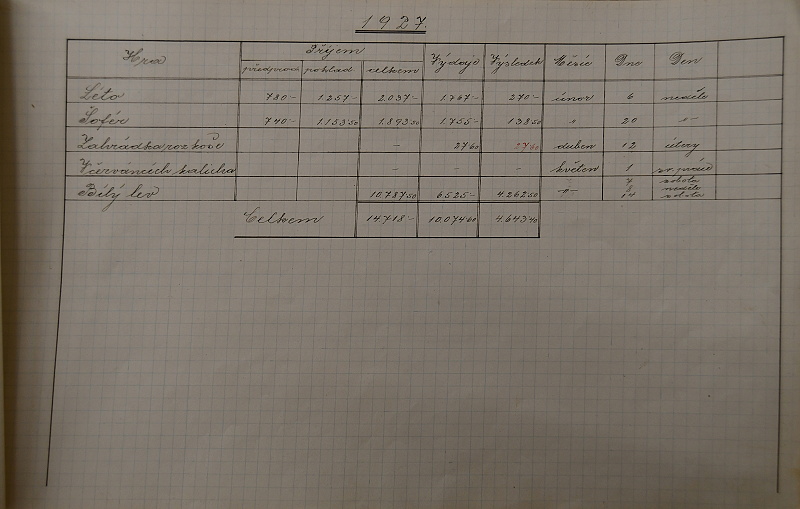 1927.
Hra Příjem Výdaje Výsledek Měsíc Dne Den
předprodej pokladna celkem
Léto 780·- 1.257·- 2.037·- 1.767·- 270·- únor 6 neděle
Šofér 740·- 1.153·50 1.893·50 1.755·- 138·50 " 20 -"-
Zahrádka rozkoše - 27·60 27·60 duben 12 úterý
V červáncích kalicha - - - květen 1 sv. práce
7 sobota
Bílý lev 10.787·50 6.525·- 4.262·50 -"- 8 neděle
14 sobota
Celkem 14.718·- 10.074·60 4.643·40